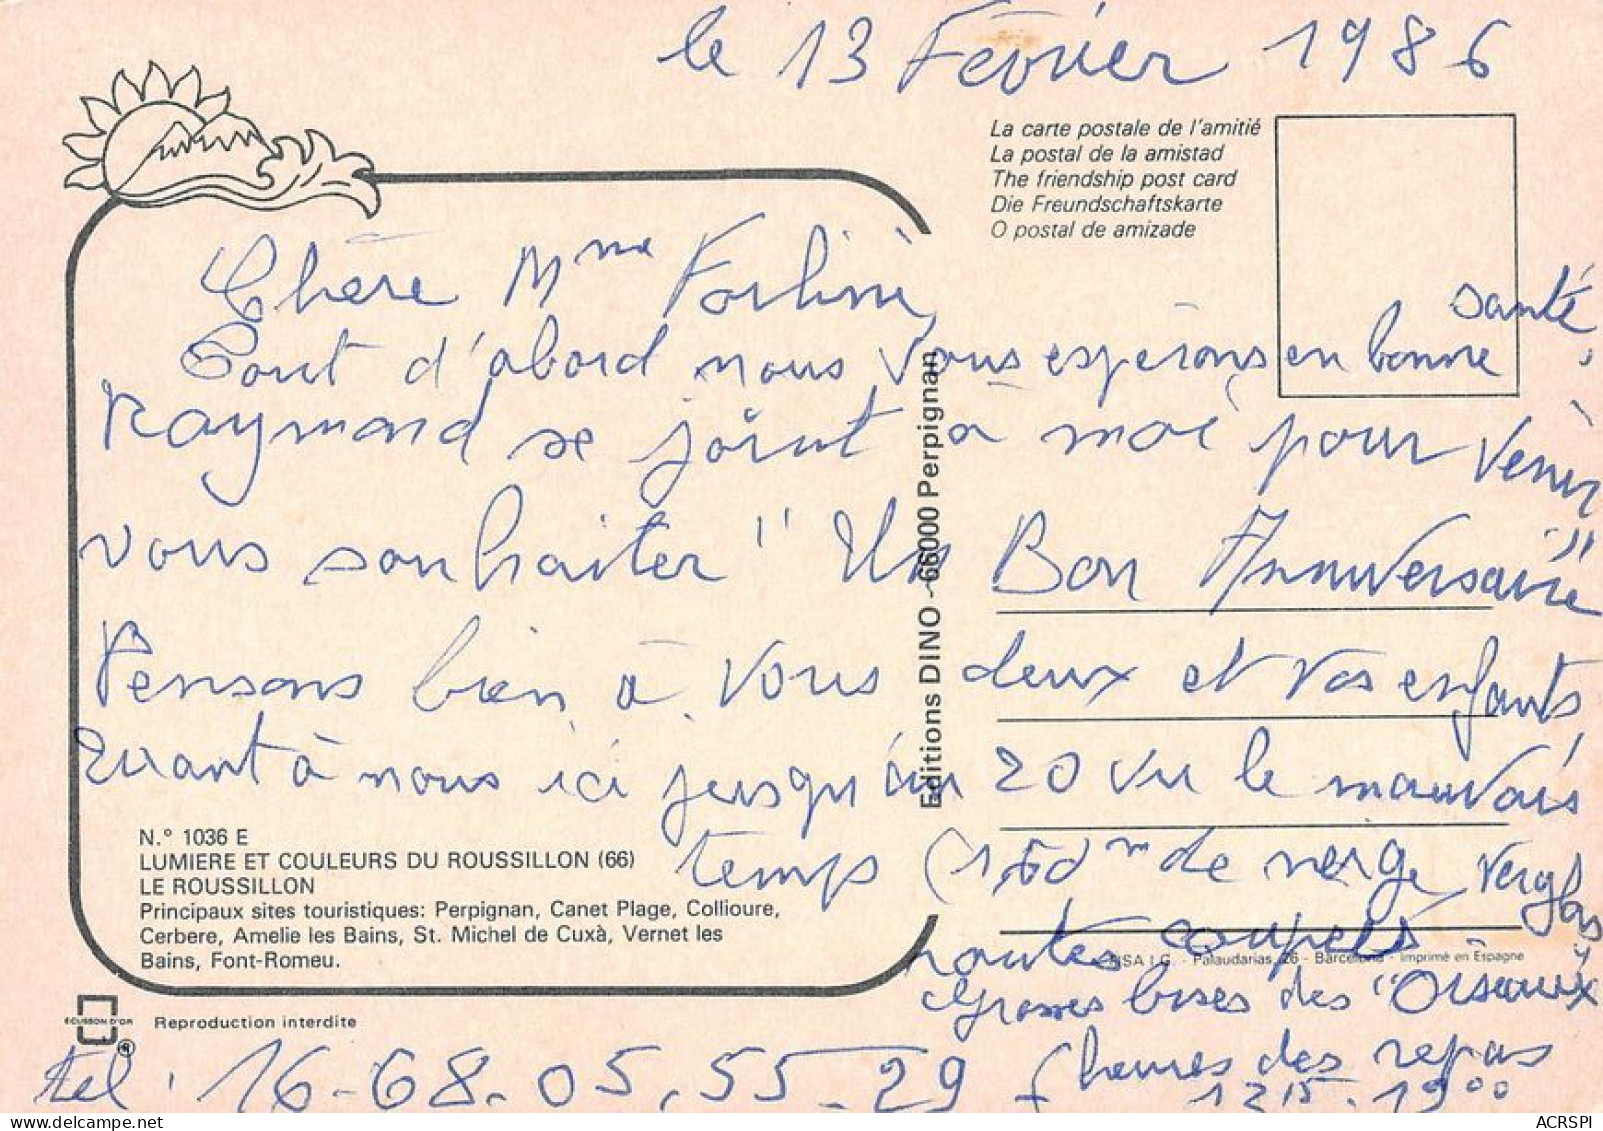 le 13 Février 1986
La carte postale de l'amitié
La postal de la amistad
The friendship post card
Die Freundschaftskarte
O postal de amizade
Chère Mme Forlini,
Tout d'abord nous vous espérons en bonne santé.
Raymond se joint à moi pour venir
vous souhaiter "Un Bon Anniversaire"
Pensons bien à vous deux et vos enfants
Quant à nous ici jusqu'au 20 vu le mauvais
temps (1,50m de neige, verglas
routes coupées
Grosses bises des "Oiseaux
tel : 16-68.05.55-29 (heures des repas
12 15 - 19 00
Editions DINO - 66000 Perpignan
N.° 1036 E
LUMIERE ET COULEURS DU ROUSSILLON (66)
LE ROUSSILLON
Principaux sites touristiques: Perpignan, Canet Plage, Collioure,
Cerbere, Amelie les Bains, St. Michel de Cuxà, Vernet les
Bains, Font-Romeu.
FISA I.G. - Palaudarias, 26 - Barcelona - Imprimé en Espagne
ECUSSON D'OR
Reproduction interdite
ACRSPI